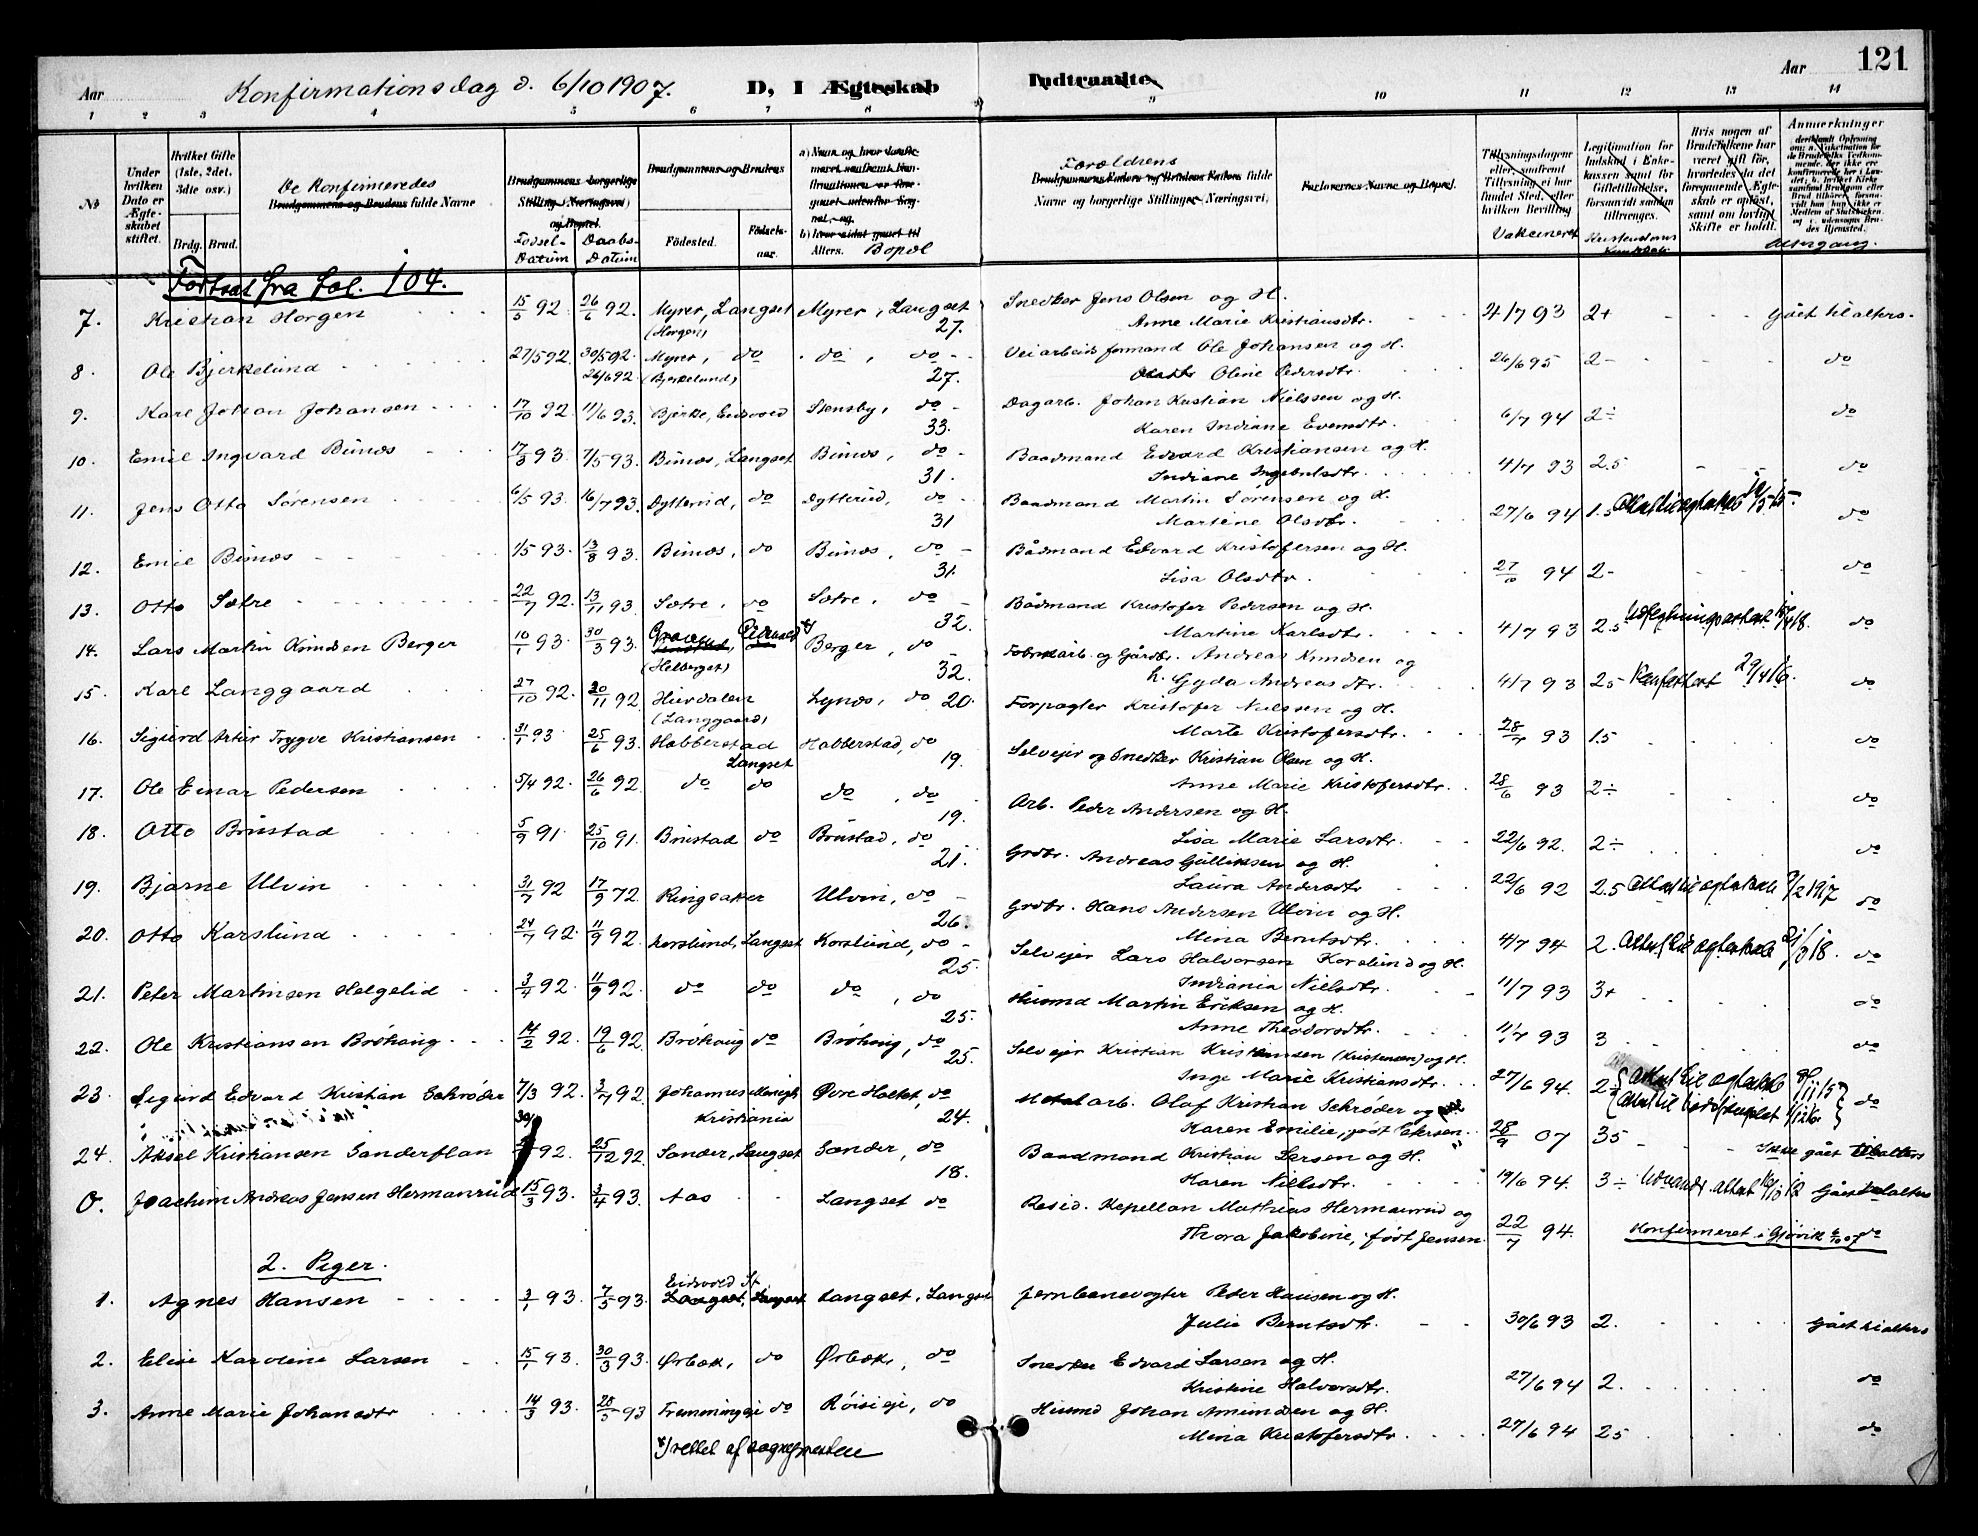 121
Aar Konfirmationsdag d. 6/10 1907. D, I Ægteskab Indtraadte Aar
1 2 3 4 5 6 7 8 9 10 11 12 13 14
№ Under hvilken Dato er Ægteskabet stiftet. Hvilket Gifte (1ste, 2det, 3die osv.) Brdg. Brud. De Konfirmeredes Brudgommens og Brudens fulde Navne
Brudgommens borgerlige Stilling (Næringsvei) og Bopæl. Fødsel-Datum Daabs-Datum
Brudgommens og Brudens Fødested. Fødselsaar. Alters. Bopæl
Forældrens Brudgommens Faders og Brudens Faders fulde Navne og borgerlige Stilling, Næringsvei,
Forlovernes Navne og Bopæl.
Tillysningsdagene eller, saafremt Tillysning ei har fundet Sted, efter hvilken Bevilling Vakcineret
Legitimation for Indskud i Enkekassen samt for Giftetilladelse, forsaavidt saadan tiltrænges. Kristendoms Kundskab
Hvis nogen af Brudefolkene har været gift før, hvorledes da det foregaaende Ægteskab er opløst, samt om lovligt Skifte er holdt.
Anmærkninger Altergang.
Fortsat fra fol. 104.
7. Kristian Horgen 15/5 92 26/6 92. Myrer, Langset (Horgen) Myrer, Langset 27. Snedker Jens Olsen og H. Anne Marie Kristiansdtr. 4/7 93 2+ Gået til alters.
8. Ole Bjerkelund 27/5 92. 30/5 92. 26/6 92 Myrer, do (Bjerkelund) do, do 27. Veiarbeids formand Ole Johansen og H. Oline Pedersdtr. 26/6 95 2- do
9. Karl Johan Johansen 17/10 92 11/6 93. Bjerke, Eidsvold Stensby, do 33. Dagarb. Johan Kristian Nielssen og H. Karen Indiane Evensdtr. 6/7 94 2÷ do
10. Emil Ingvard Bunæs 17/3 93 7/5 93. Bunæs, Langset Bunæs, do 31. Baadmand Edvard Kristiansen og H. Indiane Ingebretsdtr. 4/7 93 2.5 do
11. Jens Otto Sørensen 6/5 93. 16/7 93. Dytterud, do Dytterud, do 31 Baadmand Martin Sørensen og H. Martine Olsdtr. 27/6 94 1.5 do
12. Emil Bunæs 1/5 93. 13/8 93. Bunæs, do Bunæs, do 31. Bådmand Edvard Kristofersen og H. Lisa Olsdtr. 27/10 94 2- do
13. Otto Sætre 22/7 92. 13/11 93. Sætre, do Sætre, do 32. Bådmand Kristofer Pedersen og H. Martine Karlsdtr. 4/7 93 2.5 do
14. Lars Martin Knudsen Berger 10/1 93 30/3 93. (Helberget) Berger, do 32. Fabrikarb. og Gårdbr. Andreas Knudsen og h. Gyda Andreasdtr. 4/7 93 25 do
15. Karl Langgaard 27/10 92. 20/11 92 Hurdalen (Langgaard) Lynæs, do 20. Forpagter Kristofer Nielssen og H. Marte Kristofersdtr. 28/7 93 1.5
16. Sigurd Artur Trygve Kristiansen 31/1 93 25/6 93. Habberstad Langset Habberstad, do 19. Selveier og Snedker Kristian Olsen og H. Anne Marie Kristofersdtr. 28/6 93 2÷ do
17. Ole Einar Pedersen 5/4 92. 26/6 92 do do do, do 19. Arb. Peder Andersen og H. Lisa Marie Larsdtr. 22/6 92. 2÷ do
18. Otto Brustad 5/9 91. 25/10 91. Brustad do Brustad, do 21. Grdbr. Andreas Gulliksen og H. Laura Andersdtr. 22/6 92 2.5 do
19. Bjarne Ulvin 31/7 92 17/9 72. Ringsaker Ulvin, do 26. Grdbr. Hans Andersen Ulvin og H. Mina Berntsdtr. 4/7 94 2. do
20. Otto Karslund 24/7 92. 11/9 92. Korslund, Langset Korslund, do 25. Selveier Lars Halvorsen Korslund og H. Indiania Nielsdtr. 11/7 93 3+ do
21. Peter Martinsen Helgelid 3/4 92. 11/9 92. do do do, do 25. Husmd Martin Eriksen og H. Anne Theodorsdtr. 11/7 93 3 do
22. Ole Kristiansen Bröhaug 14/2 92. 19/6 92. Bröhaug do Bröhaug, do 25. Selveier Kristian Kristiansen (Kristensen) og H. Inge Marie Kristiansdtr. 27/6 94. 2 do
23. Sigurd Edvard Kristian Schrøder 7/3 92. 3/7 92. Johannes Menigh. Kristiania Øvre Holtet, do 24. Metalarb. Olaf Kristian Schrøder og Karen Emilie, født Petersen. 28/9 07 35 Ikke gået til alters
24. Aksel Kristiansen Sanderflan 92. 25/12 92. Sander, Langset Sander, do 18. Baadmand Kristian Larsen og H. Karen Nielsdtr. 19/6 94. 3÷ Gået til alters
0. Joachim Andreas Jensen Hermanrud 15/3 93. 3/4 93. Aas Langset do Resid. Kapellan Mathias Hermanrud og Thora Jakobine, født Jensen. 22/7 94. Konfirmeret i Gjøvik 6/10 07 do
2. Piger.
1. Agnes Hansen 3/1 93. 7/5 93. Eidsvold St. Langset, Langset Langset, Langset Jernbanevogter Peter Hansen og H. Julie Berntsdtr. 30/6 93 2. Gået til alters
2. Elise Karoline Larsen 15/1 93. 30/3 93. Ørbæk, do Ørbæk, do Snedker Edvard Larsen og H. Kristine Halvorsdtr. 27/6 94 2. do
3. Anne Marie Johansdtr 14/3 93. 28/5 93 Fremmingeie do Röisieie, do Husmd Johan Amundsen og H. Mina Kristofersdtr. 27/6 94 25 do
rettet af sognepresten